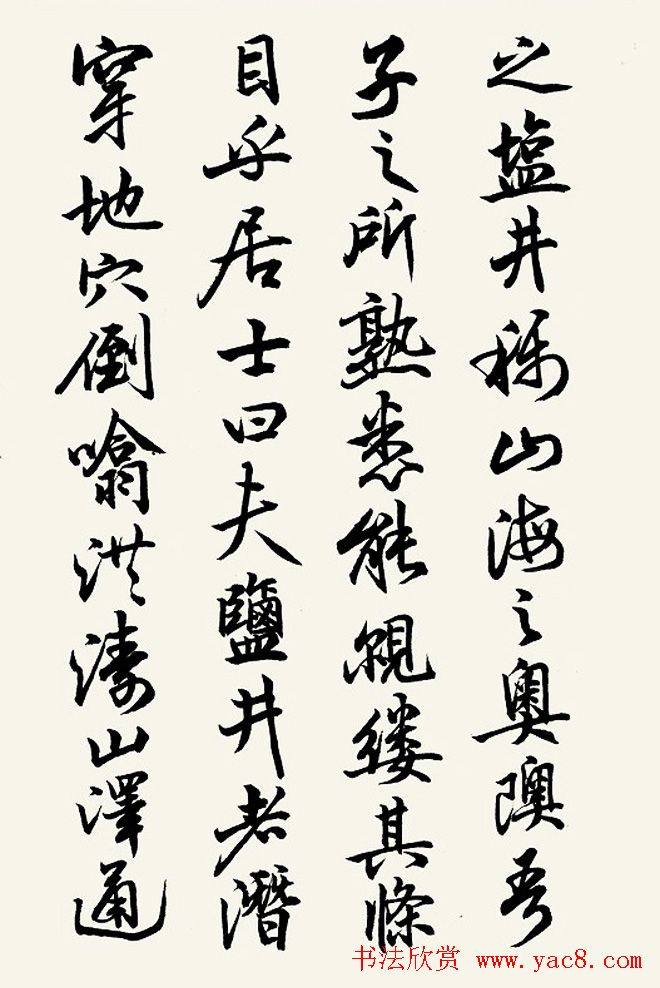 之塩井稱山海之奧隩吾
子之所熟悉能覶缕其條
目乎居士曰夫鹽井者潛
穿地穴倒噏洪濤山澤通
书法欣赏 www.yac8.com